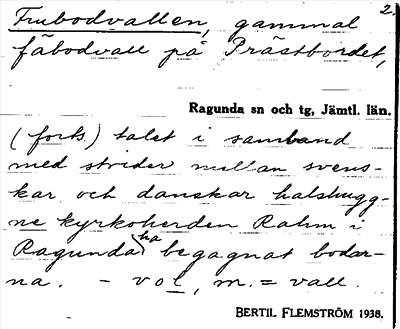 2.
Frubodvallen, gammal
fäbodvall på Prästbordet,
Ragunda sn och tg, Jämtl. län.
(forts.) talet i samband
med strider mellan svens-
kar och danskar halshugg-
ne kyrkoherden Rahm i
Ragunda ha begagnat bodar-
na. - vol, m. = vall.
BERTIL FLEMSTRÖM 1938.